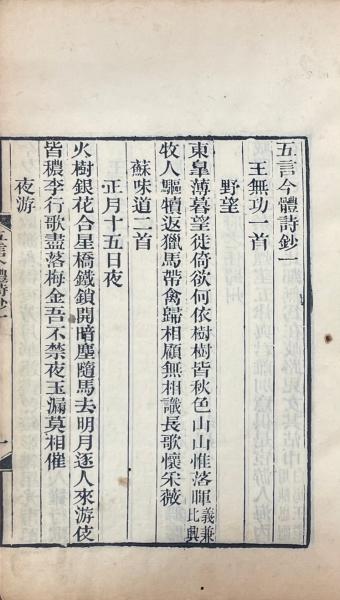 五言今體詩鈔一
王無功一首
野望
東皐薄暮望徙倚欲何依樹樹皆秋色山山惟落暉義兼比興
牧人驅犢返獵馬帶禽歸相顧無相識長歌懷采薇
蘇味道二首
正月十五日夜
火樹銀花合星橋鐵鎖開暗塵隨馬去明月逐人來游伎
皆穠李行歌盡落梅金吾不禁夜玉漏莫相催
夜游
五言今體詩鈔一